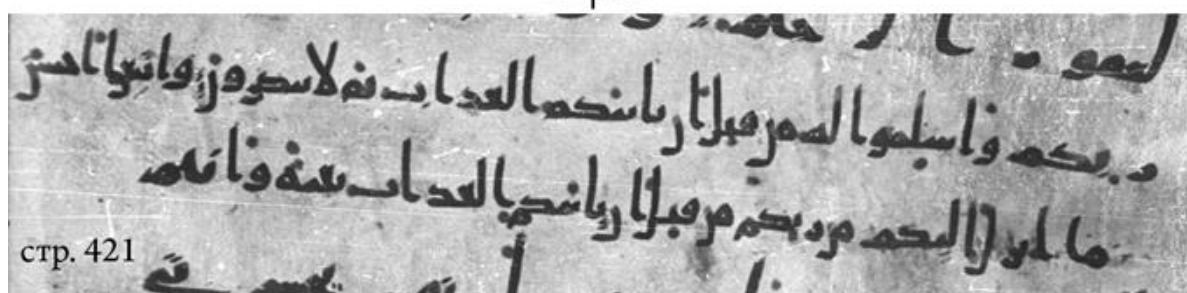 ربكم واسلموا له من قبل ان ياتيكم العذاب ثم لا تنصرون واتبعوا احسن
ما انزل اليكم من ربكم من قبل ان ياتيكم العذاب بغتة وانتم
стр. 421